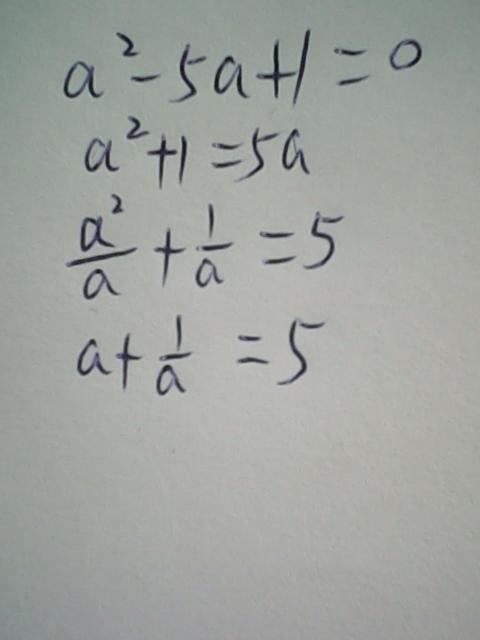 a²-5a+1=0
a²+1=5a
a²/a+1/a=5
a+1/a=5